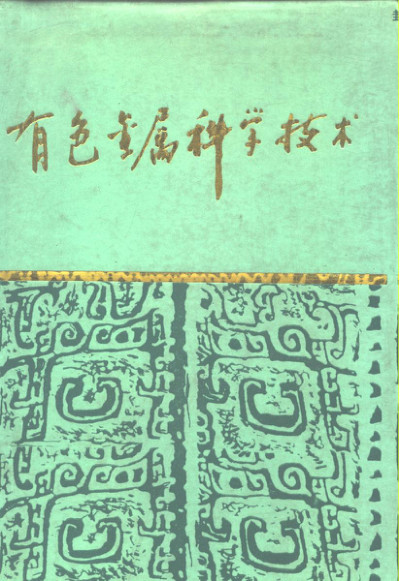 有色金属科学技术